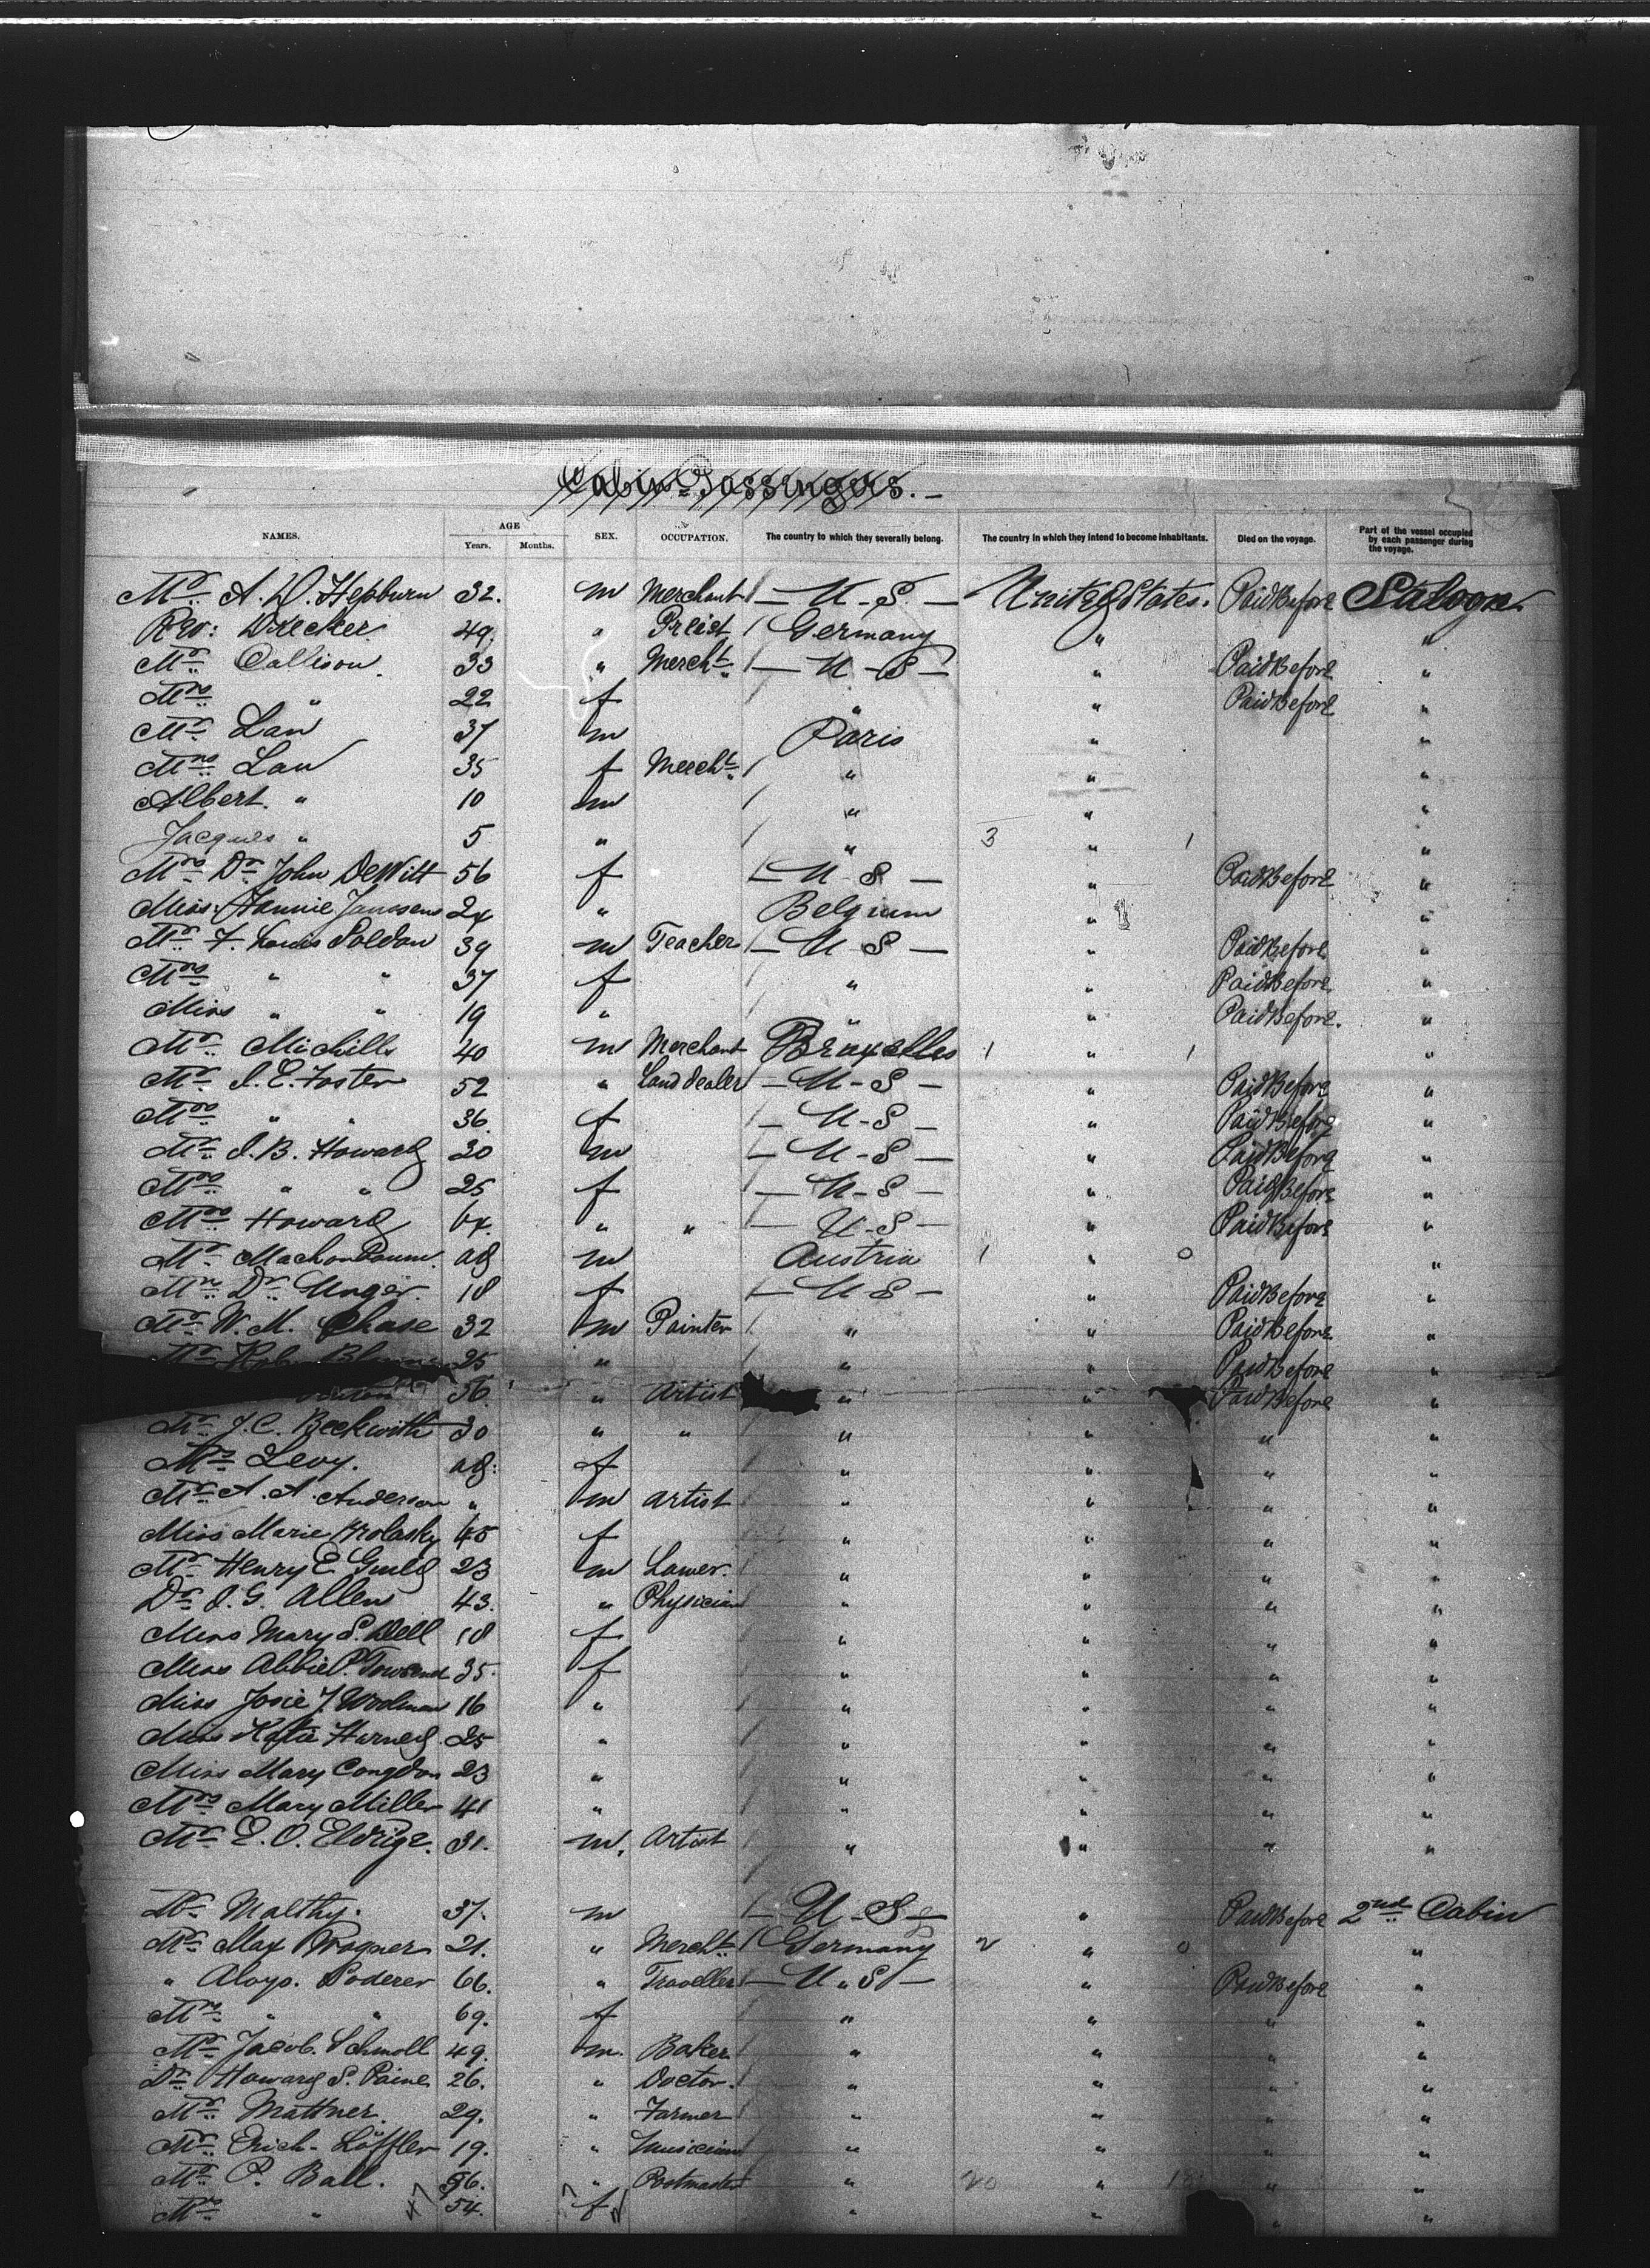 Cabin-Passengers.-
NAMES. AGE Years. Months. SEX. OCCUPATION. The country to which they severally belong. The country in which they intend to become inhabitants. Died on the voyage. Part of the vessel occupied by each passenger during the voyage.
Mr. A. D. Hepburn 32. m Merchant / — U-S. — United States. Paid Before Saloon
Rev: Drecker 49. " Preist / Germany " "
Mr. Callison 33 " Mercht. / — U-S — " Paid Before "
Mrs. " 22 f / " " Paid Before "
Mr. Lan 37 m Paris " "
Mrs. Lan 35 f Mercht. / " " "
Albert. " 10 m / " " "
Jacques " 5 " / " 3 " 1 "
Mrs. Dr. John DeWitt 56 f / — U-S — " Paid Before "
Miss. Fannie Janssens 24 " Belgium " "
Mr. F. Louis Soldan 39 m Teacher / — U-S — " Paid Before "
Mrs. " " 37 f / " " Paid Before "
Miss " " 19 " / " " Paid Before. "
Mr. Michills 40 m Merchant Bruxelles 1 " 1 "
Mr. I. E. Foster 52 " Land dealer — U-S — " Paid Before "
Mrs. " " 36. f / — U-S — " Paid Before "
Mr. I. B. Howard 30 m — U-S — " Paid Before "
Mrs. " " 25 f / — U-S — " Paid Before "
Mrs. Howard 64. " " / — U-S — " Paid Before "
Mr. ad m Austria 1 " 0 "
Mrs. Dr. Unger. 18 f / — U S — " Paid Before "
Mr. W. M. Chase 32 m Painter / " " Paid Before "
Mr. 25 " / " " Paid Before "
36. " Artist " " Paid Before "
Mr. J. C. Beckwith 30 " " / " " " "
Mrs. Levy. ad: f / " " " "
Mr. A. A. Anderson " m artist " " " "
Miss Marie Krolasky 45 f / " " " "
Mr. Henry E. Guild 23 m Lawer. / " " " "
Dr. I. G. Allen 43. " Physician / " " " "
Miss Mary S. Dell 18 f / " " " "
Miss Abbie P. Townsend 35. f / " " " "
Miss Josie J. Woolman 16 " / " " " "
Miss Katie Harned 25 " / " " " "
Miss Mary Congdon 23 " / " " " "
Mrs. Mary Miller 41 " / " " " "
Mr. E. O. Eldrige. 31. m. Artist / " " " "
Malthy. 37. m / — U-S — " Paid Before 2nd. Cabin
Mr. Max Wagner 21. " Mercht. / Germany 2 " 0 "
" Aloys. Poderer 66. " Traveller / — U.S — " Paid Before "
Mrs. " " 69. f / " " " "
Mr. Jacob. Schmoll 49. m. Baker / " " " "
Dr. Howard S. Paine 26. " Doctor. / " " " "
Mr. Mattner. 29. " Farmer / " " " "
Mr. Erich. Löffler 19. " Musician / " " " "
Mr. P. Ball. 56. " Postmaster / " 20 " 18 " "
Mrs. " 54. f " " " "